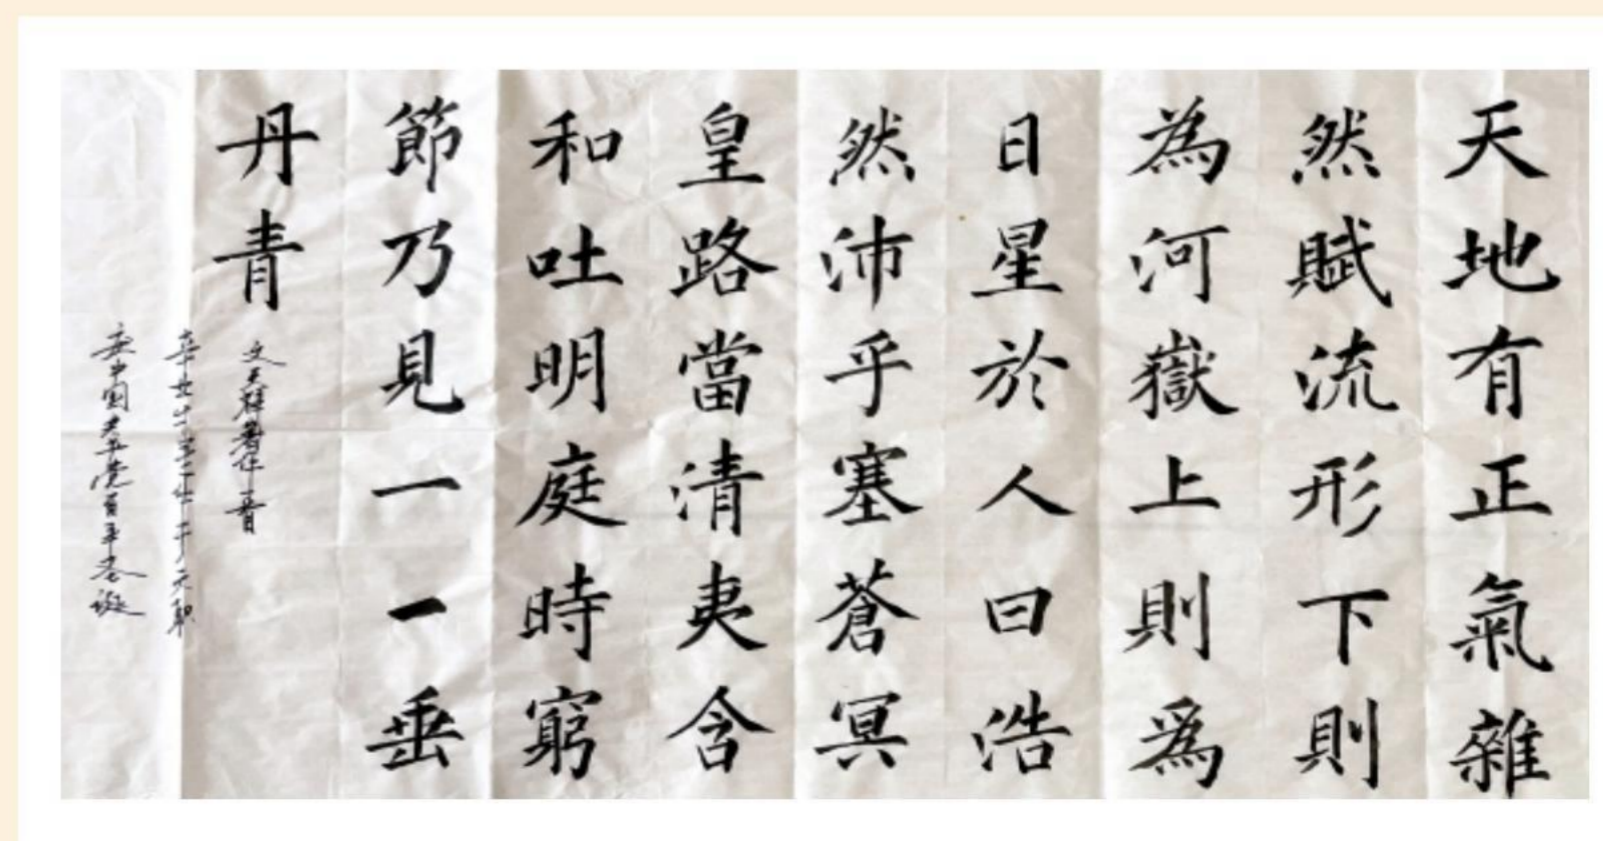 天地有正氣雜
然賦流形下則
為河嶽上則爲
日星於人曰浩
然沛乎塞蒼冥
皇路當清夷含
和吐明庭時窮
節乃見一一垂
丹青
文天祥